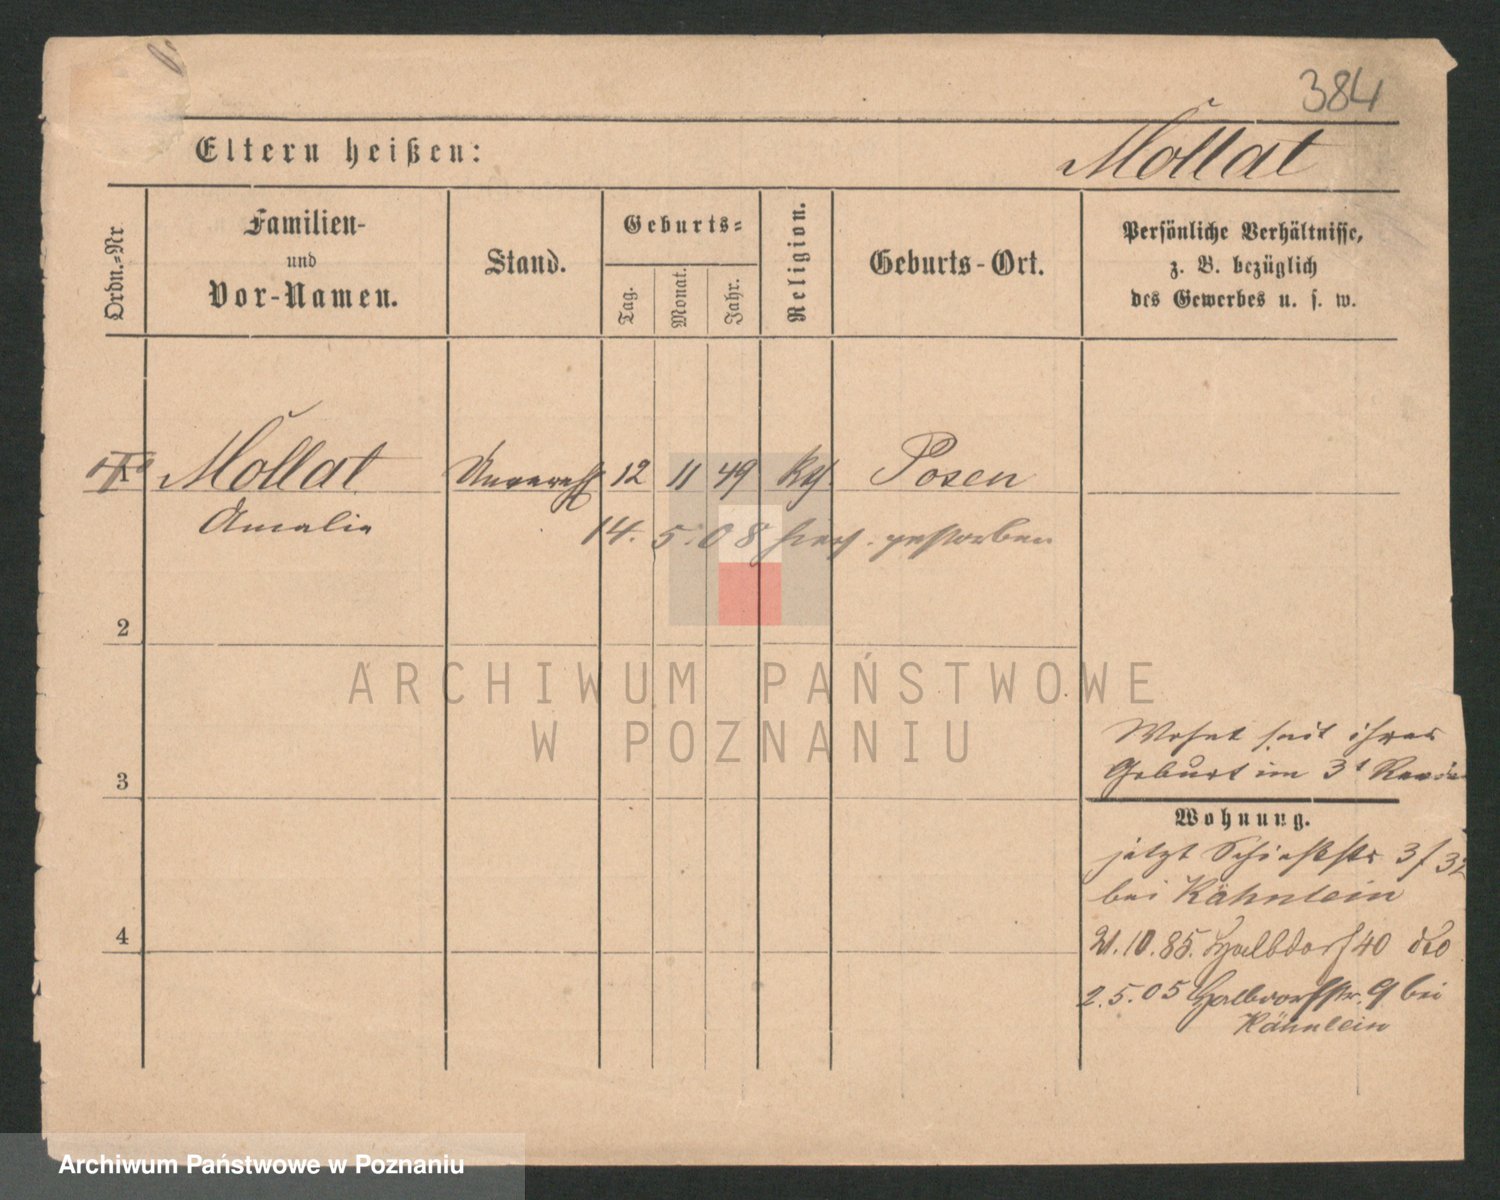 384
Eltern heißen:
Mollat
Ordn.-Nr
Familien-
und
Vor-Namen.
Stand.
Geburts-
Tag.
Monat.
Jahr.
Religion.
Geburts-Ort.
Persönliche Verhältnisse,
z. B. bezüglich
des Gewerbes u. s. w.
1 Mollat Unvereh 12 11 49 Posen
Amalie
14. 5. 08 hier gestorben
2
3
4
Wohnt seit ihrer
Geburt im 3t Revier
Wohnung.
jetzt Schießstr 3/32
bei Kähnlein
21.10.85. Halbdorf 40 dto
2.5.05 Halbdorfstr. 9 bei
Kähnlein
ARCHIWUM PAŃSTWOWE
W POZNANIU
Archiwum Państwowe w Poznaniu